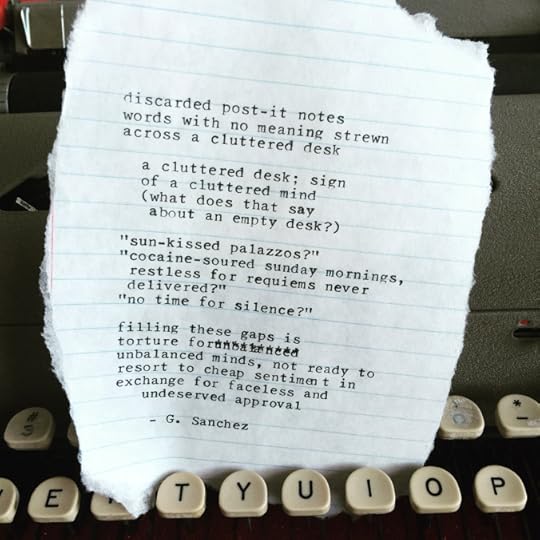 discarded post-it notes
words with no meaning strewn
across a cluttered desk
a cluttered desk; sign
of a cluttered mind
(what does that say
about an empty desk?)
"sun-kissed palazzos?"
"cocaine-soured sunday mornings,
restless for requiems never
delivered?"
"no time for silence?"
filling these gaps is
torture for
unbalanced minds, not ready to
resort to cheap sentiment in
exchange for faceless and
undeserved approval
- G. Sanchez
# 3
* -
E T Y U I O P